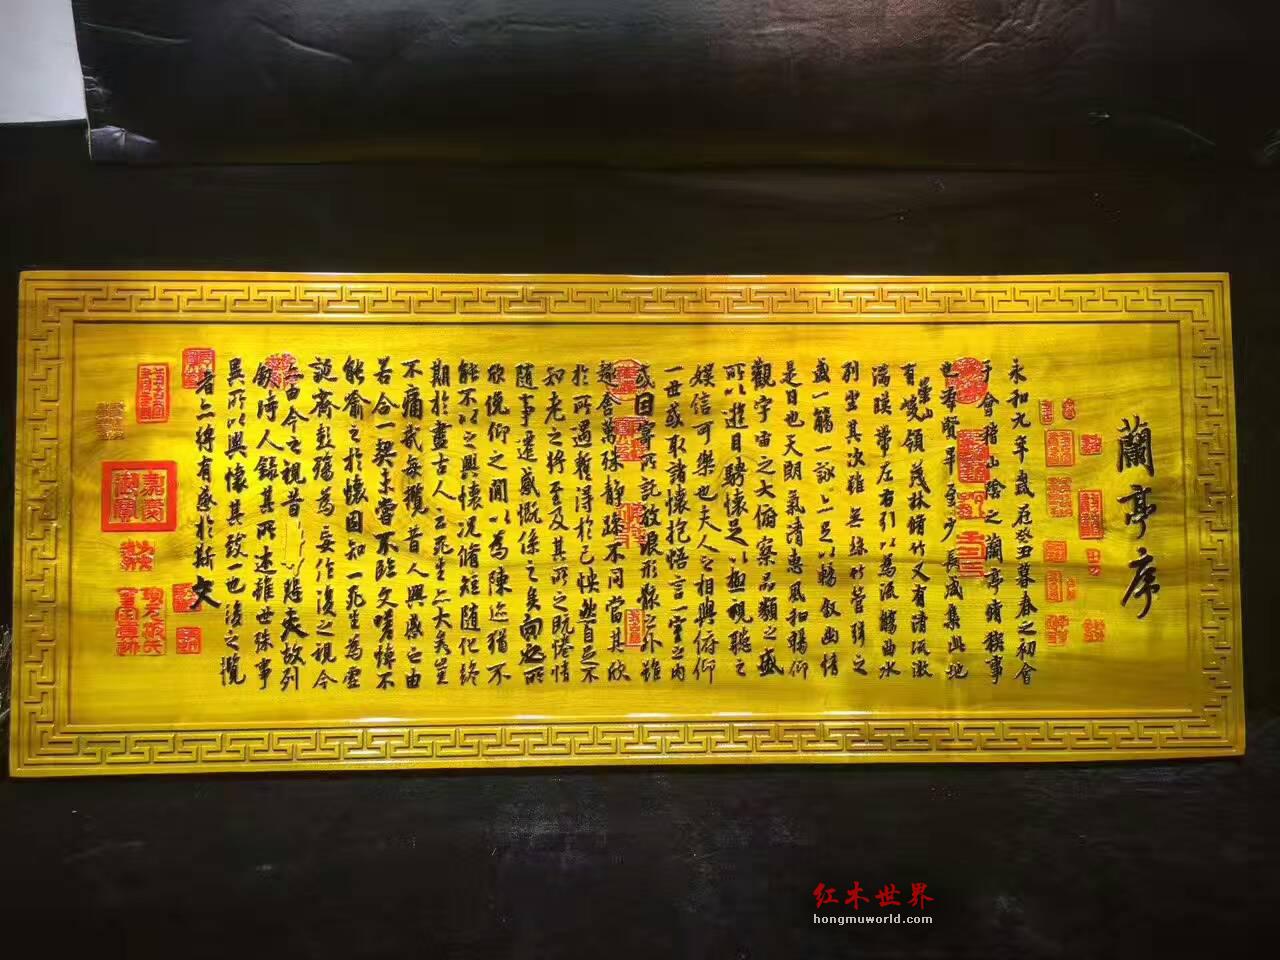 蘭亭序
永和九年歲在癸丑暮春之初會
于會稽山陰之蘭亭脩禊事
也羣賢畢至少長咸集此地
有崇山峻領茂林脩竹又有清流激
湍暎帶左右引以為流觴曲水
列坐其次雖無絲竹管弦之
盛一觴一詠亦足以暢敘幽情
是日也天朗氣清惠風和暢仰
觀宇宙之大俯察品類之盛
所以遊目騁懷足以極視聽之
娛信可樂也夫人之相與俯仰
一世或取諸懷抱悟言一室之內
或因寄所託放浪形骸之外雖
趣舍萬殊靜躁不同當其欣
於所遇暫得於己怏然自足不
知老之將至及其所之既惓情
隨事遷感慨係之矣向之所
欣俛仰之閒以為陳迹猶不
能不以之興懷況脩短隨化終
期於盡古人云死生亦大矣豈
不痛哉每攬昔人興感之由
若合一契未嘗不臨文嗟悼不
能喻之於懷固知一死生為虛
誕齊彭殤為妄作後之視今
亦由今之視昔悲夫故列
敘時人錄其所述雖世殊事
異所以興懷其致一也後之攬
者亦將有感於斯文
红木世界
hongmuworld.com